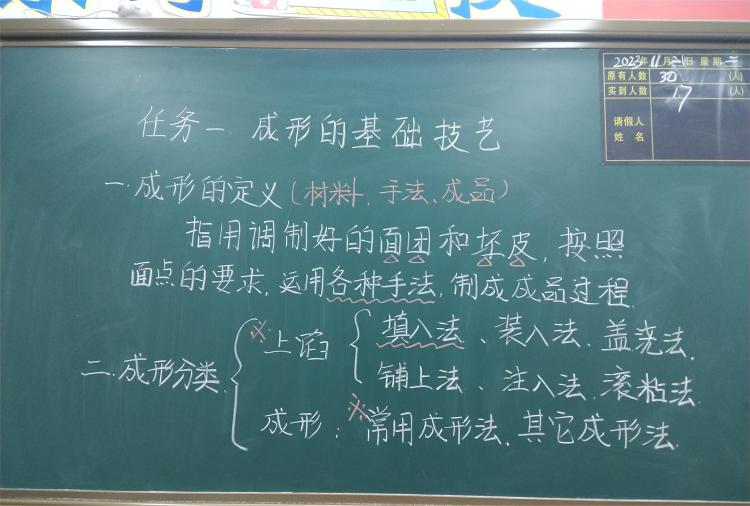 2023年11月21日 星期二
原有人数 30 (人)
实到人数 17 (人)
请假人
姓名
任务一 成形的基础技艺
一.成形的定义(材料、手法、成品)
指用调制好的面团和坯皮,按照
面点的要求,运用各种手法,制成成品过程.
二.成形分类
※上馅
填入法、装入法、盖浇法.
铺上法、注入法、滚粘法.
成形: ※常用成形法、其它成形法.